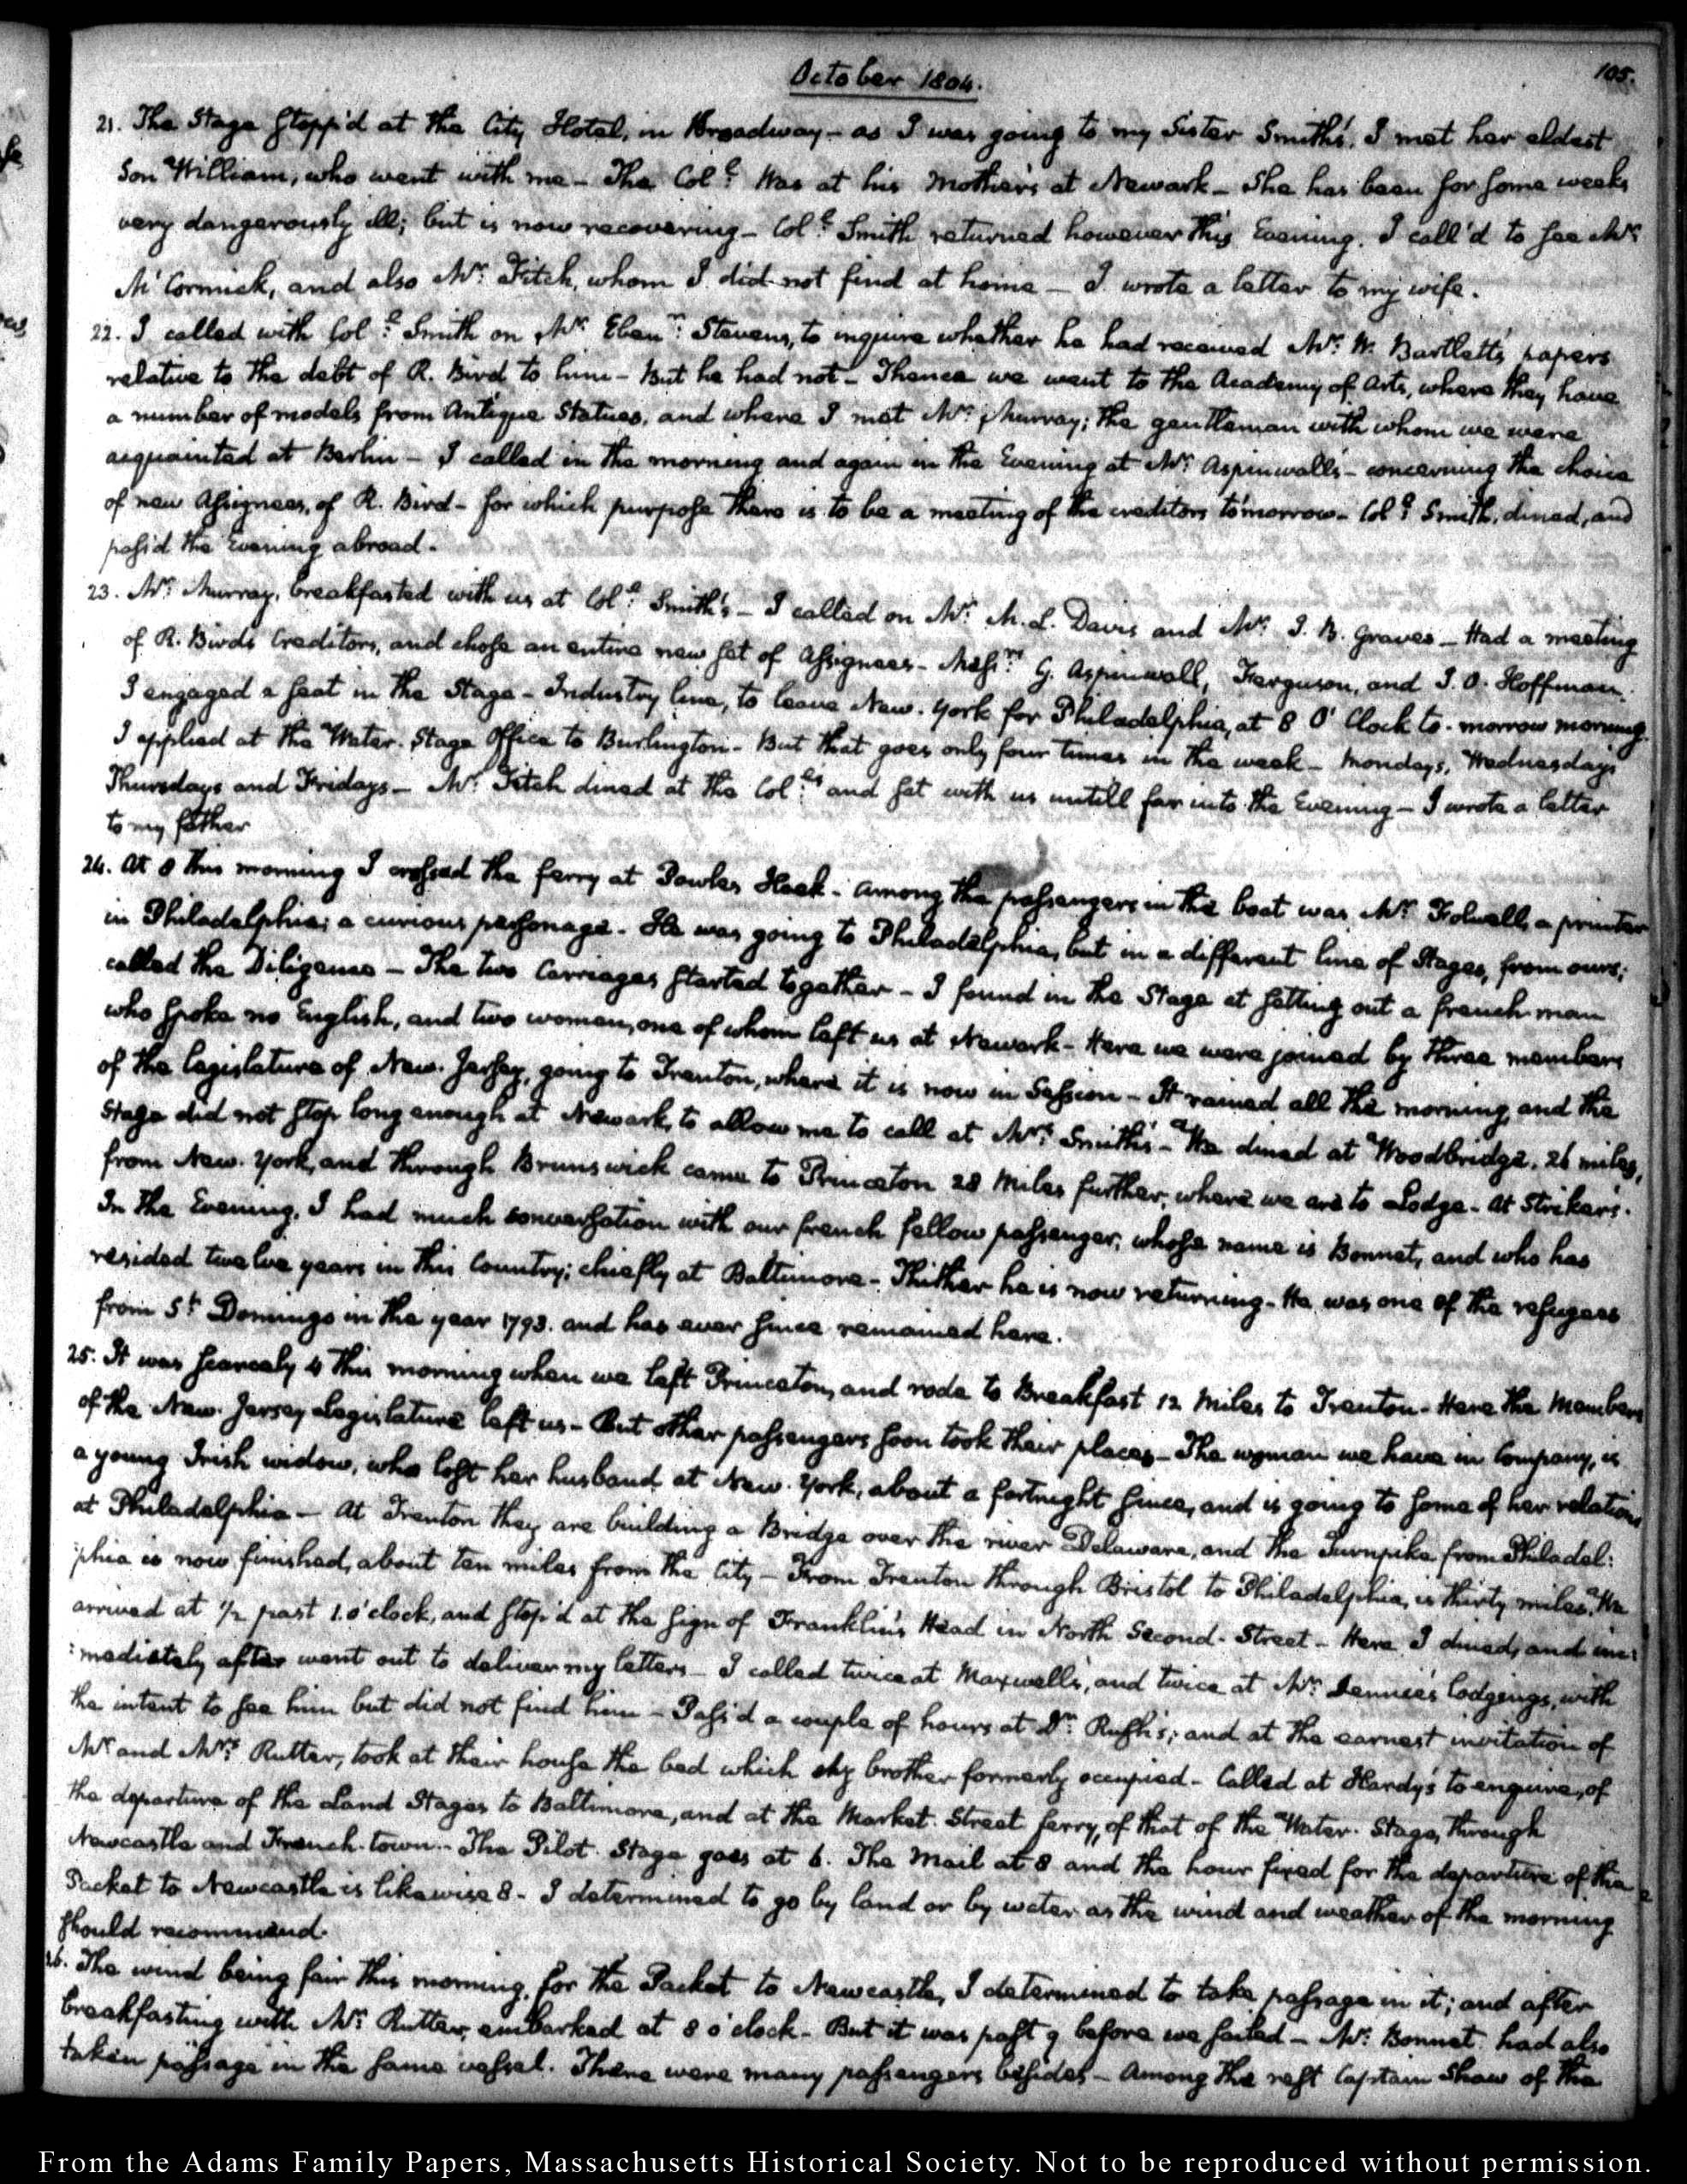 October 1804.
105.
21. The Stage stopp'd at the City Hotel, in Broadway - as I was going to my Sister Smith's, I met her eldest
Son William, who went with me - The Col.l was at his Mother's at Newark - She has been for some weeks
very dangerously ill; but is now recovering - Col.l Smith returned however this Evening. I call'd to see Mr.
McCormick, and also Mr. Fitch, whom I did not find at home - I wrote a letter to my wife.
22. I called with Col.l Smith on Mr. Eben.r Stevens, to inquire whether he had received Mr. W. Bartlett's papers
relative to the debt of R. Bird to him - But he had not - Thence we went to the Academy of Arts, where they have
a number of models from Antique Statues, and where I met Mr. Murray; the gentleman with whom we were
acquainted at Berlin - I called in the morning and again in the Evening at Mr. Aspinwall's - concerning the choice
of new Assignees, of R. Bird - for which purpose there is to be a meeting of the creditors tomorrow - Col.l Smith, dined, and
pass'd the Evening abroad.
23. Mr. Murray, breakfasted with us at Col.l Smith's - I called on Mr. M. L. Davis and Mr. J. B. Graves - Had a meeting
of R. Bird's Creditors, and chose an entire new set of Assignees - Mess.rs G. Aspinwall, Ferguson, and J. O. Hoffman.
I engaged a seat in the Stage - Industry line, to leave New-York for Philadelphia, at 8 O'Clock to-morrow morning.
I applied at the Water-Stage Office to Burlington - But that goes only four times in the week - Mondays, Wednesdays
Thursdays and Fridays - Mr. Fitch dined at the Col.ls and sat with us untill far into the Evening - I wrote a letter
to my father
24. At 8 this morning I crossed the ferry at Powles Hook - Among the passengers in the boat was Mr. Folwell, a printer
in Philadelphia; a curious personage - He was going to Philadelphia, but in a different line of Stages, from ours;
called the Diligence - The two Carriages started together - I found in the Stage at setting out a french man
who spoke no English, and two women, one of whom left us at Newark - Here we were joined by three members
of the legislature of New-Jersey, going to Trenton, where it is now in Session - It rained all the morning, and the
Stage did not stop long enough at Newark, to allow me to call at Mrs. Smith's - We dined at Woodbridge, 26 miles,
from New-York, and through Brunswick came to Princeton 28 Miles further, where we are to Lodge - At Striker's.
In the Evening, I had much conversation with our french fellow passenger; whose name is Bonnet, and who has
resided twelve years in this Country; chiefly at Baltimore - Thither he is now returning - He was one of the refugees
from St. Domingo in the year 1793. and has ever since remained here.
25. It was scarcely 4 this morning when we left Princeton, and rode to Breakfast 12 Miles to Trenton - Here the Members
of the New-Jersey Legislature left us - But other passengers soon took their places - The woman we have in Company, is
a young Irish widow, who lost her husband at New-York, about a fortnight since, and is going to some of her relations
at Philadelphia - At Trenton they are building a Bridge over the river Delaware, and the Turnpike from Philadel:
:phia is now finished, about ten miles from the City - From Trenton through Bristol to Philadelphia, is thirty miles. We
arrived at 1/2 past 1. o'clock, and stop'd at the sign of Franklin's Head in North Second-Street - Here I dined, and im:
:mediately after went out to deliver my letters - I called twice at Maxwell's, and twice at Mr. Dennie's lodgings, with
the intent to see him but did not find him - Pass'd a couple of hours at Dr. Rush's; and at the earnest invitation of
Mr. and Mrs. Rutter, took at their house the bed which my brother formerly occupied - Called at Hardy's to enquire, of
the departure of the Land Stages to Baltimore, and at the Market-Street ferry, of that of the Water-Stage, through
Newcastle and French-town - The Pilot-Stage goes at 6. The Mail at 8 and the hour fixed for the departure of the
Packet to Newcastle is likewise 8 - I determined to go by land or by water as the wind and weather of the morning
should recommend.
26. The wind being fair this morning, for the Packet to Newcastle, I determined to take passage in it; and after
breakfasting with Mr. Rutter, embarked at 8 o'clock - But it was past 9 before we sailed - Mr. Bonnet had also
taken passage in the same vessel. There were many passengers besides - Among the rest Captain Shaw of the
From the Adams Family Papers, Massachusetts Historical Society. Not to be reproduced without permission.